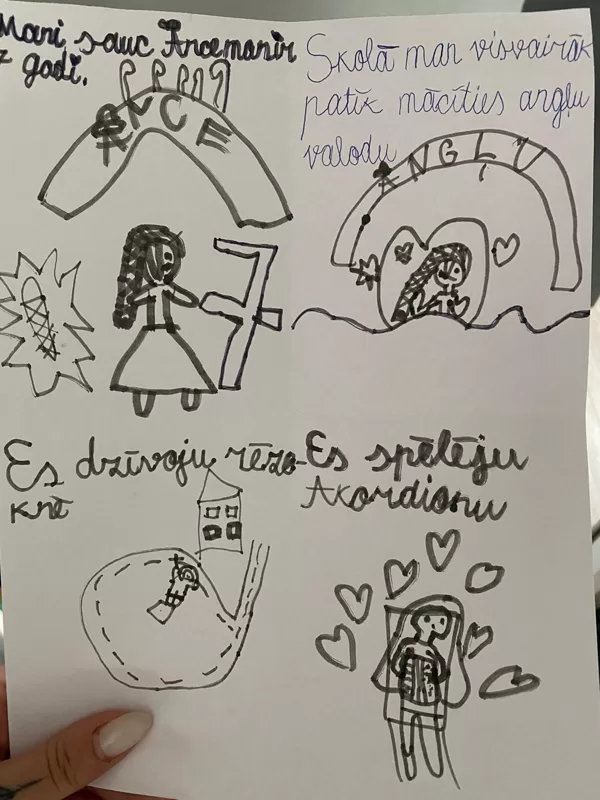 Mani sauc Ance man ir
7 godi.
ANCE
7
Skolā man visvairāk
patīk mācīties angļu
valodu
ANGĻU
Es dzīvoju rēze-
knē
Es spēlēju
Akordionu